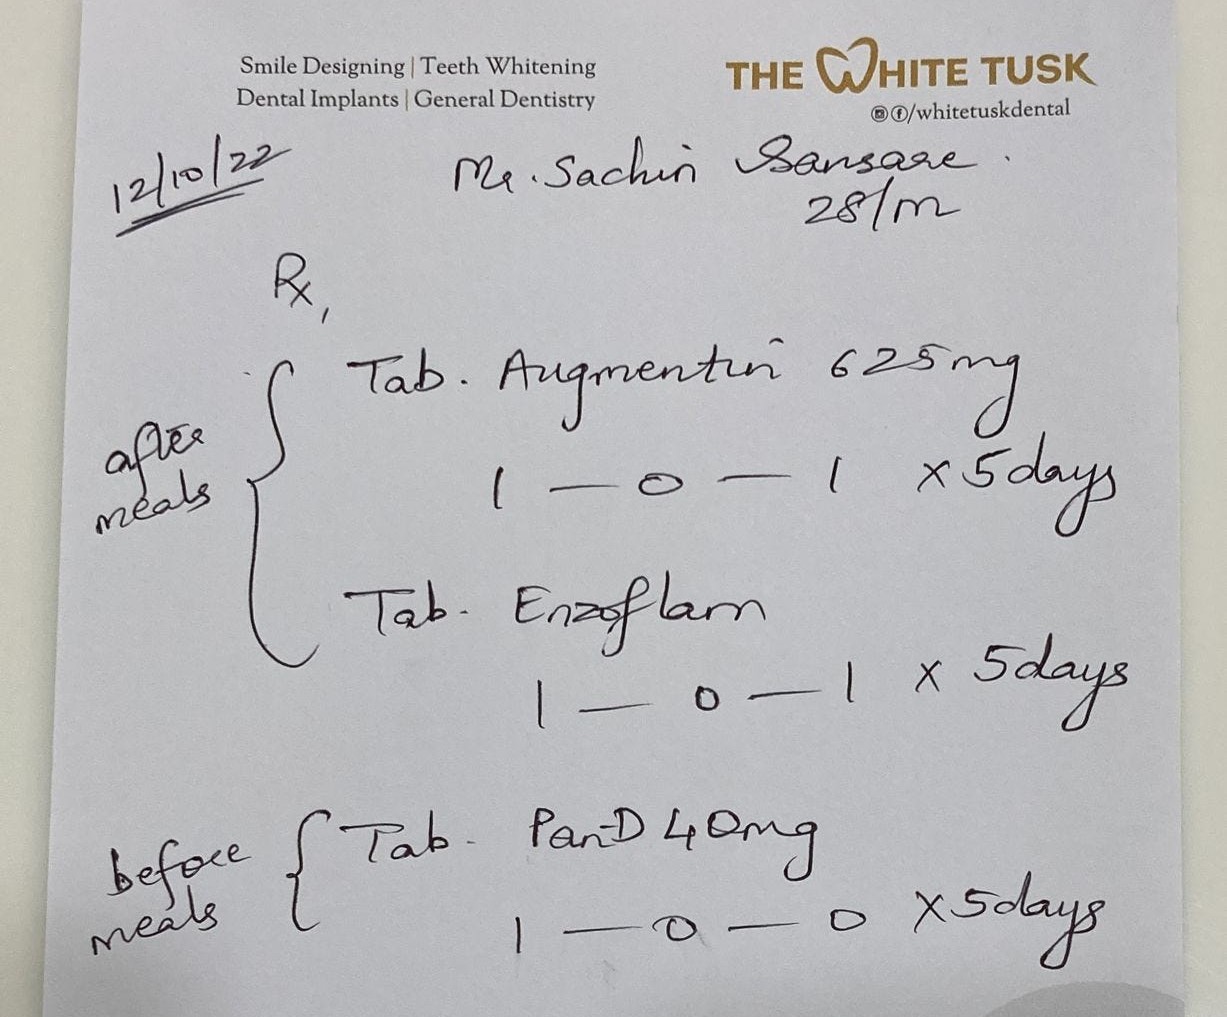 Smile Designing | Teeth Whitening
Dental Implants | General Dentistry
THE WHITE TUSK
/whitetuskdental
12/10/22
Mr. Sachin Sansare
28/m
Rx,
after meals
Tab. Augmentin 625mg
1 — 0 — 1 x 5days
Tab. Enzoflam
1 — 0 — 1 x 5days
before meals
Tab. Pan-D 40mg
1 — 0 — 0 x 5days